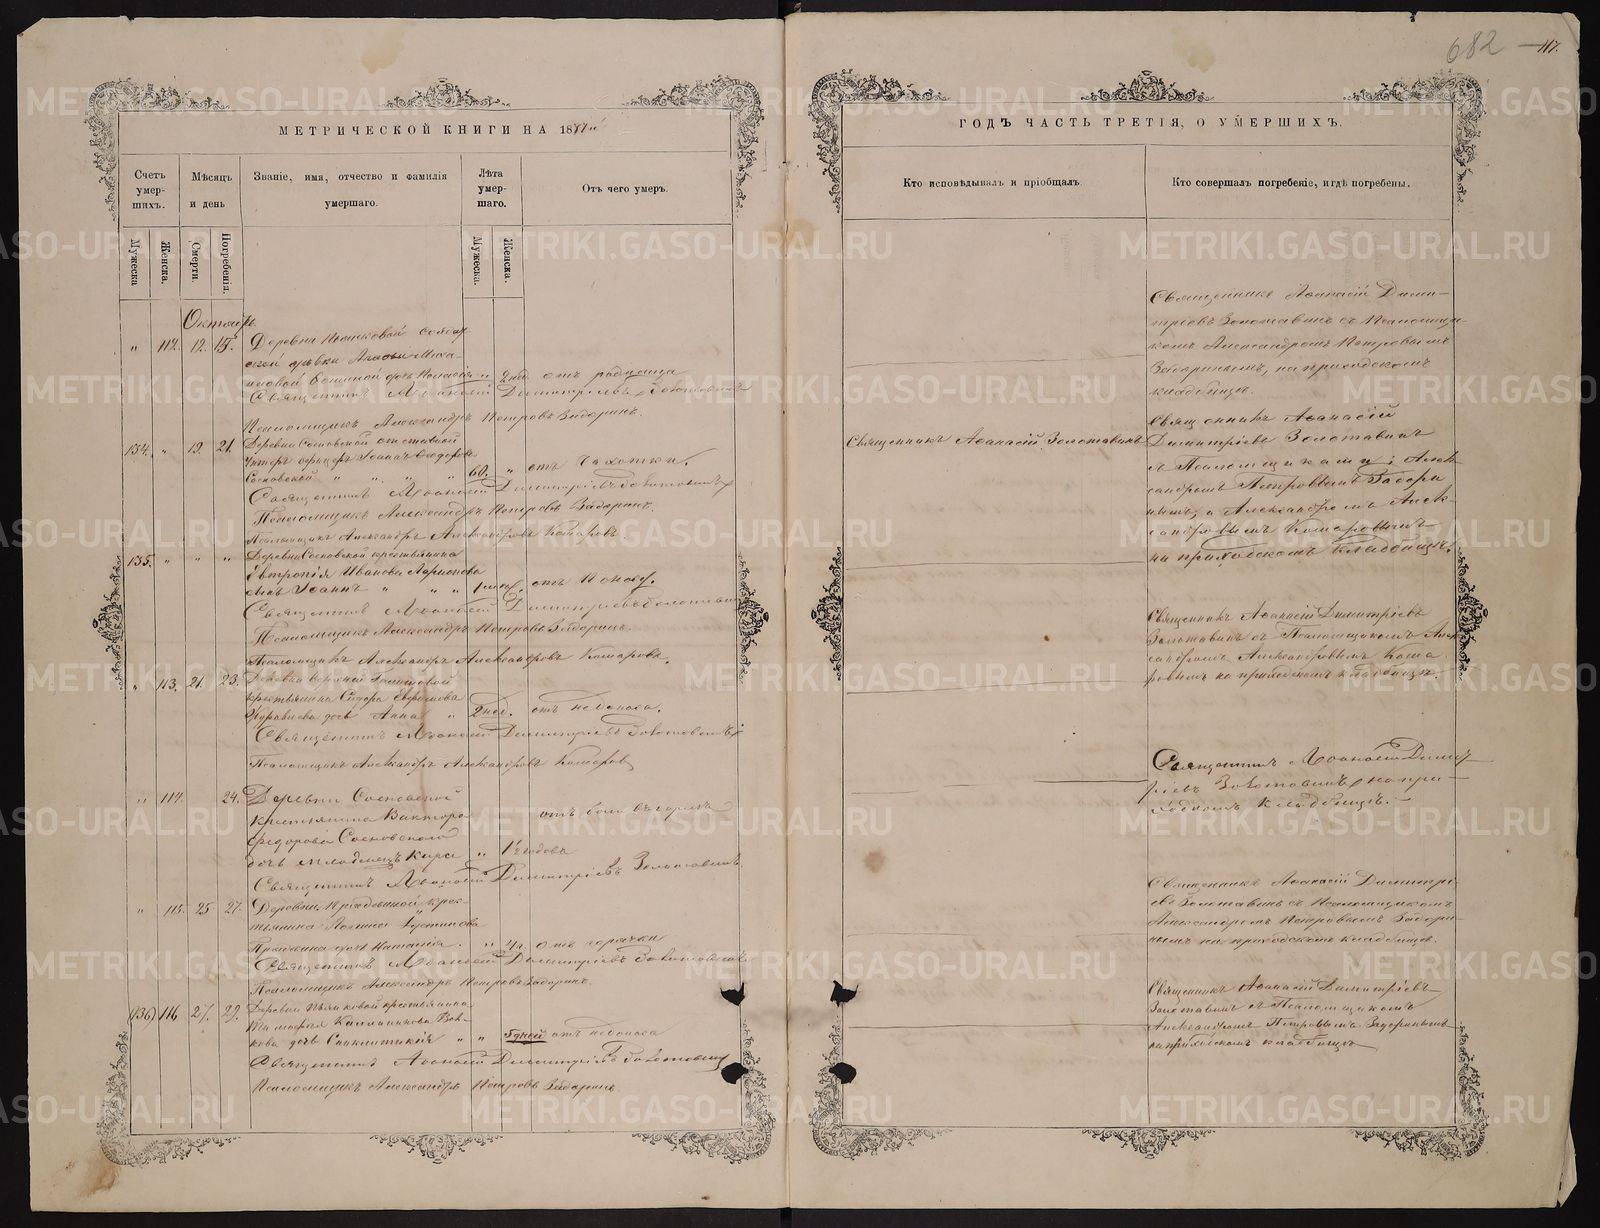 682 117.
МЕТРИЧЕСКОЙ КНИГИ НА 1877й
Счетъ умер- шихъ.
Мѣсяцъ и день
Званіе, имя, отчество и фамилія умершаго.
Лѣта умер- шаго.
Отъ чего умеръ.
Мужеска
Женска.
Смерти.
Погребенія.
Мужеска.
Женска.
Октябрь
" 112. 12. 15. Деревни
дочь " 2 нед. отъ родимца
Священникъ Аѳанасій Димитріевъ Золотавинъ
Псаломщикъ Александръ Петровъ Задоринъ.
134. " 19. 21. Деревни Сосновской отставной
Унтеръ офицеръ Іоаннъ Ѳеодоровъ
Сосновской " " " 60. " отъ Чахотки.
Священникъ Аѳанасій Димитріевъ Золотавинъ
Псаломщикъ Александръ Петровъ Задоринъ.
Псаломщикъ Александръ Александровъ Комаровъ.
135. " " " Деревни Сосновской крестьянина
Евтропія Иванова Ларионова
сынъ Іоаннъ " " " отъ поносу.
Священникъ Аѳанасій Димитріевъ Золотавинъ
Псаломщикъ Александръ Петровъ Задоринъ.
Псаломщикъ Александръ Александровъ Комаровъ.
" 113. 21. 23. Деревни
крестьянина Сидора
дочь Анна " 2 нед. отъ поноса.
Священникъ Аѳанасій Димитріевъ Золотавинъ
Псаломщикъ Александръ Александровъ Комаровъ
" 114. 24. Деревни Сосновской
крестьянина Виктора
Ѳедорова Сосновскаго отъ боли въ горлѣ
дочь младенецъ Кира " 1½ года
Священникъ Аѳанасій Димитріевъ Золотавинъ
" 115. 25 27. Деревни крес-
тьянина
дочь Наталія. " 4 г. отъ горячки
Священникъ Аѳанасій Димитріевъ Золотавинъ
Псаломщикъ Александръ Петровъ Задоринъ.
(136) 116 27. 29. Деревни крестьянина
дочь " " 5 дней отъ поноса
Священникъ Аѳанасій Димитріевъ Золотавинъ
Псаломщикъ Александръ Петровъ Задоринъ.
ГОДЪ ЧАСТЬ ТРЕТІЯ, О УМЕРШИХЪ.
Кто исповѣдывалъ и пріобщалъ
Кто совершалъ погребеніе, и гдѣ погребены.
Священникъ Аѳанасій Дими-
тріевъ Золотавинъ съ Псаломщи-
комъ Александромъ Петровымъ
Задоринымъ, на приходскомъ
кладбищѣ.
Священникъ Аѳанасій Золотавинъ
Священникъ Аѳанасій
Димитріевъ Золотавинъ
съ Псаломщиками: Алек-
сандромъ Петровымъ Задори
нымъ, и Александромъ Алек-
сандровымъ Комаровымъ
на приходскомъ кладбищѣ.
Священникъ Аѳанасій Димитріевъ
Золотавинъ съ Псаломщикомъ Алек
сандромъ Александровымъ Кома
ровымъ на приходскомъ кладбищѣ.
Священникъ Аѳанасій Димит
ріевъ Золотавинъ на при-
ходскомъ кладбищѣ.
Священникъ Аѳанасій Димитрі-
евъ Золотавинъ съ Псаломщикомъ
Александромъ Петровымъ Задори-
нымъ на приходскомъ кладбищѣ.
Священникъ Аѳанасій Димитріевъ
Золотавинъ съ Псаломщикомъ
Александромъ Петровымъ Задоринымъ
на приходскомъ кладбищѣ
METRIKI.GASO-URAL.RU